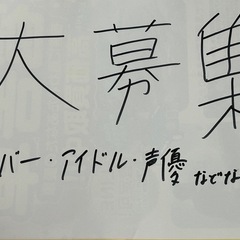 大募集
バー・アイドル・声優などな